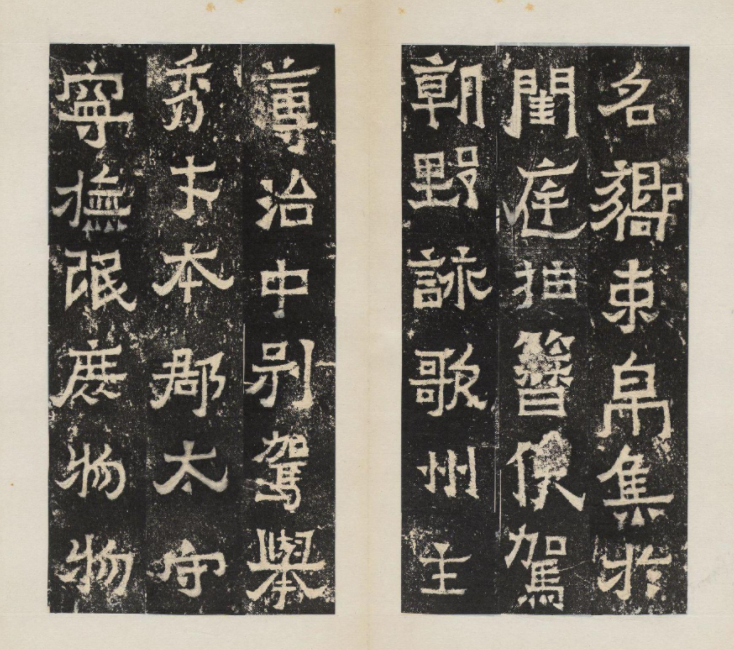 名鄉束帛集於
閨庭抽簪俟駕
朝野詠歌州主
薄治中別駕舉
秀才本郡太守
寧撫氓庶物物